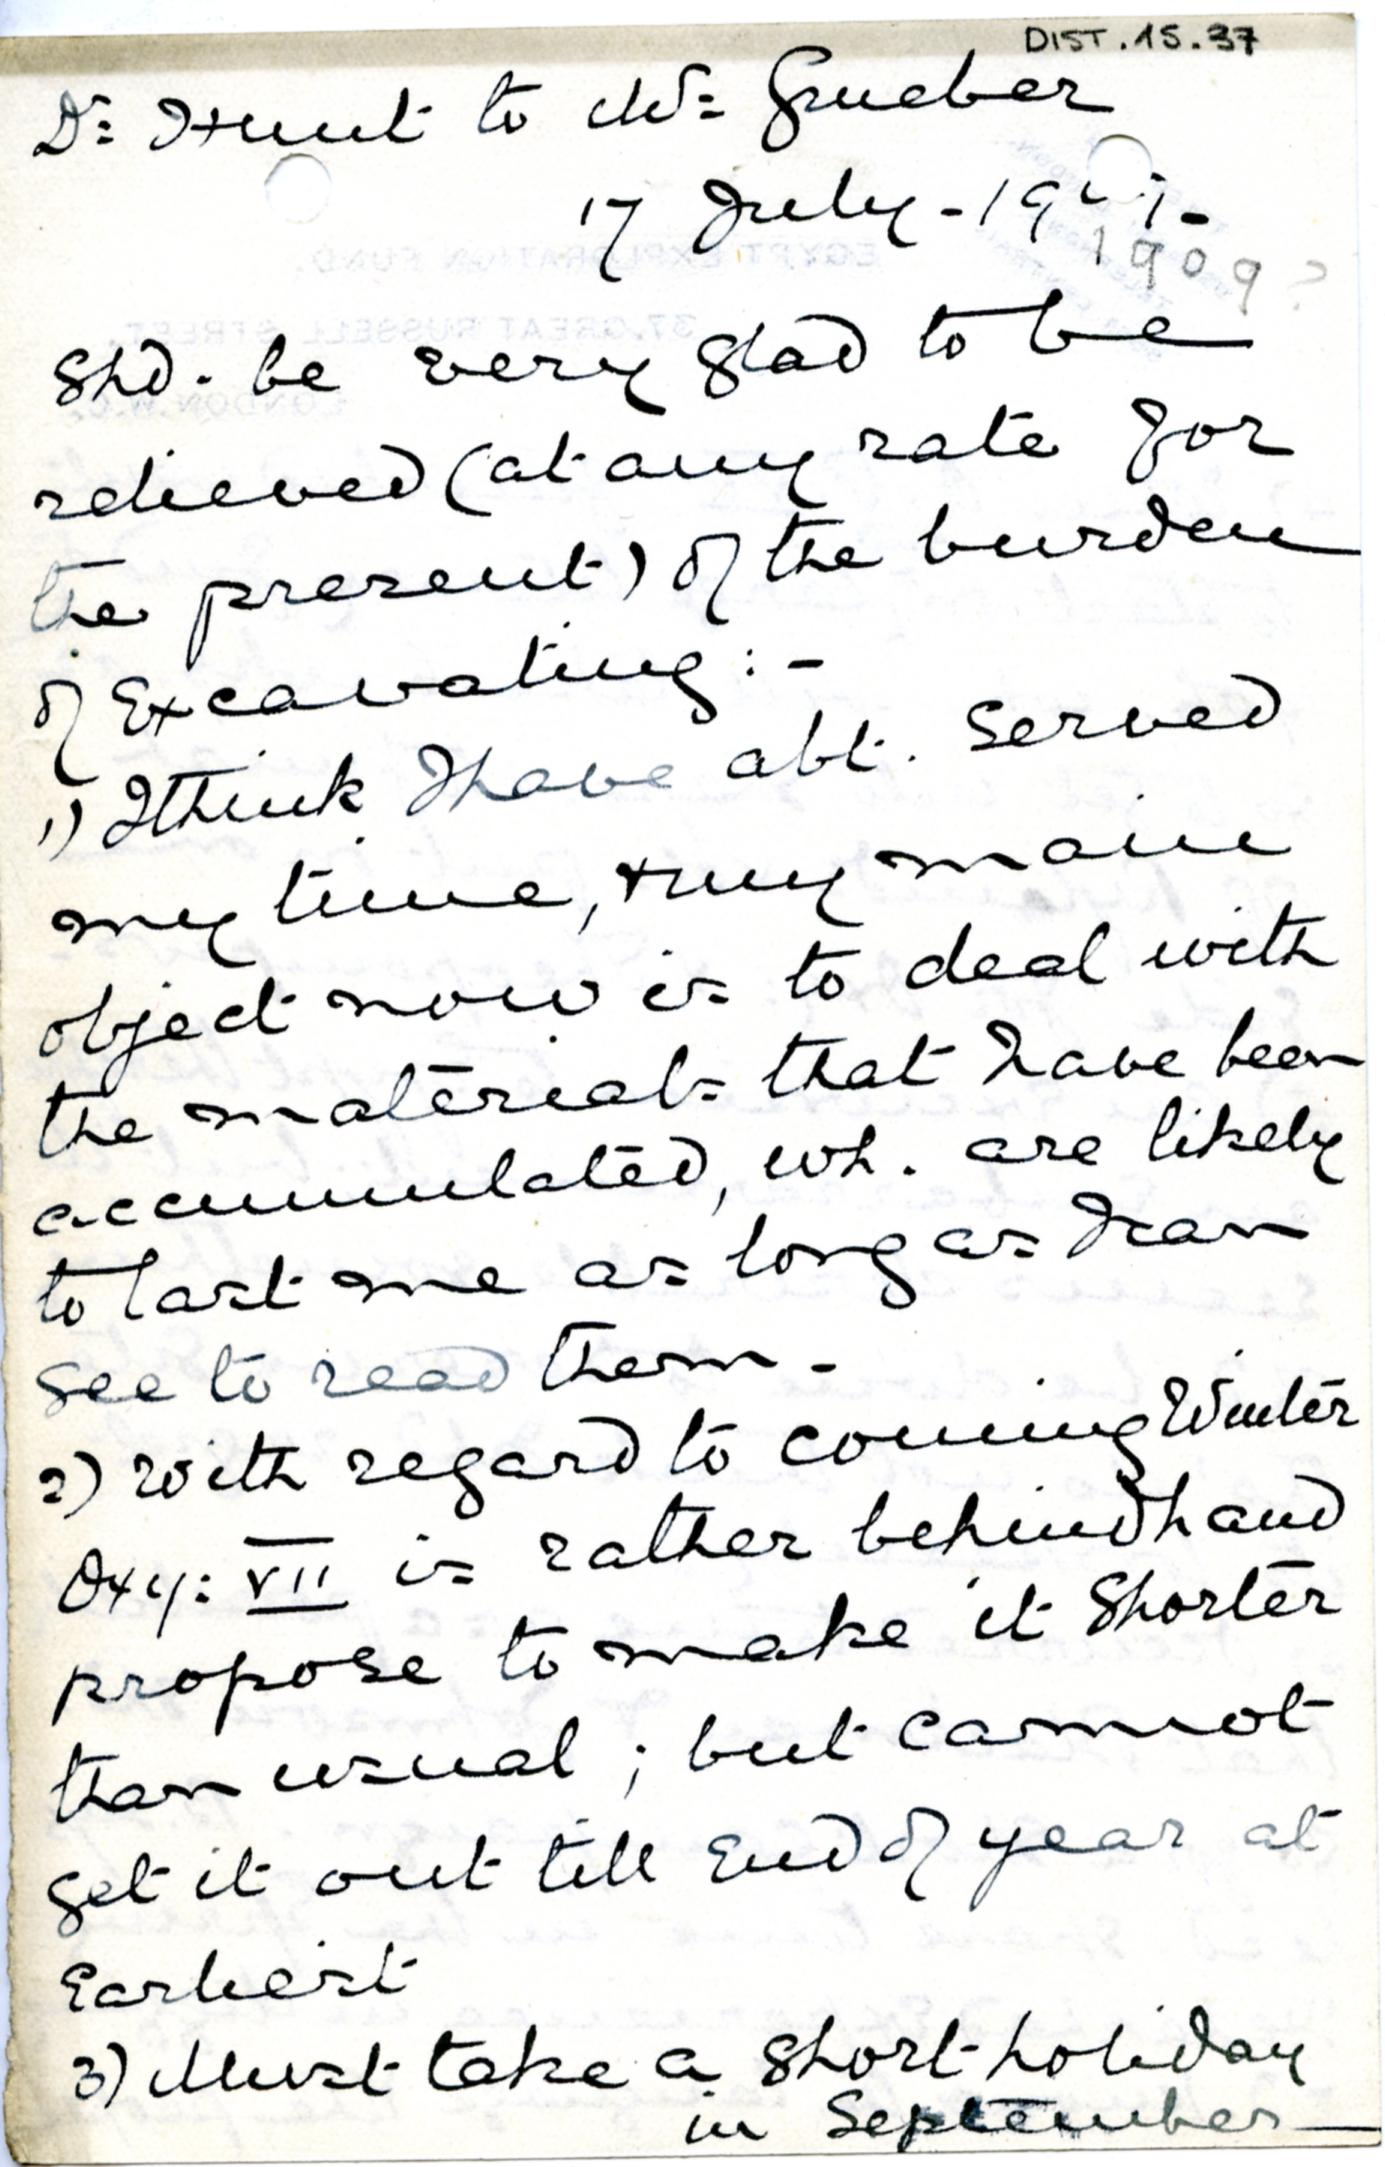 DIST.15.37
Dr: Hunt to Mr: Grueber
17 July - 19
1909?
Shd. be very glad to be
relieved (at any rate for
the present) of the burden
of Excavating :-
1) I think I have abt. served
my time, & my main
object now is to deal with
the materials that have been
accumulated, wh. are likely
to last me as long as I can
see to read them -
2) With regard to coming Winter
Oxy: VII is rather behindhand
propose to make it shorter
than usual ; but cannot
get it out till End of year at
Earliest
3) Must take a short holiday
in September